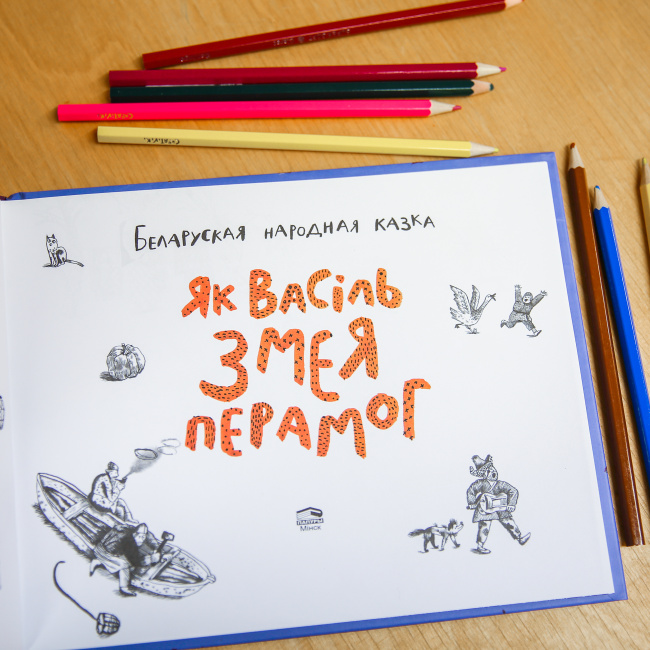 Беларуская народная казка
Як Васіль
Змея
перамог
ПАПУРЫ
Мінск